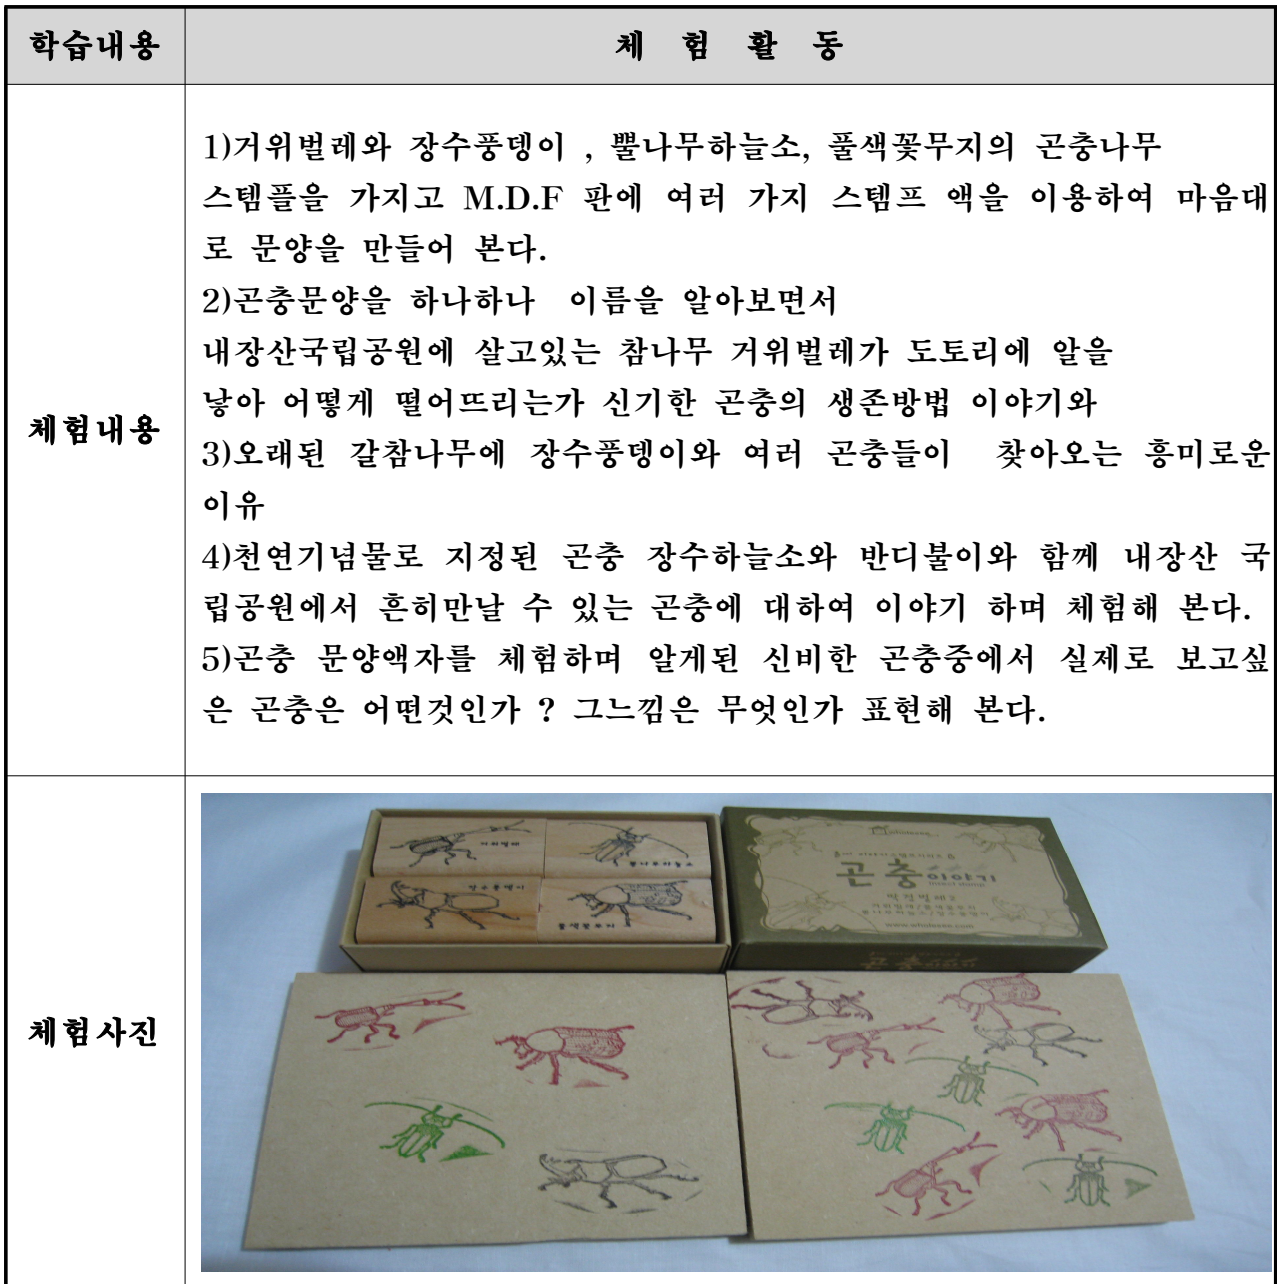 학습내용
체 험 활 동
체험내용
1)거위벌레와 장수풍뎅이 , 뿔나무하늘소, 풀색꽃무지의 곤충나무
스템플을 가지고 M.D.F 판에 여러 가지 스템프 액을 이용하여 마음대
로 문양을 만들어 본다.
2)곤충문양을 하나하나 이름을 알아보면서
내장산국립공원에 살고있는 참나무 거위벌레가 도토리에 알을
낳아 어떻게 떨어뜨리는가 신기한 곤충의 생존방법 이야기와
3)오래된 갈참나무에 장수풍뎅이와 여러 곤충들이 찾아오는 흥미로운
이유
4)천연기념물로 지정된 곤충 장수하늘소와 반디불이와 함께 내장산 국
립공원에서 흔히만날 수 있는 곤충에 대하여 이야기 하며 체험해 본다.
5)곤충 문양액자를 체험하며 알게된 신비한 곤충중에서 실제로 보고싶
은 곤충은 어떤것인가 ? 그느낌은 무엇인가 표현해 본다.
체험사진
거위벌레
뿔나무하늘소
장수풍뎅이
풀색꽃무지
곤충이야기
딱정벌레2